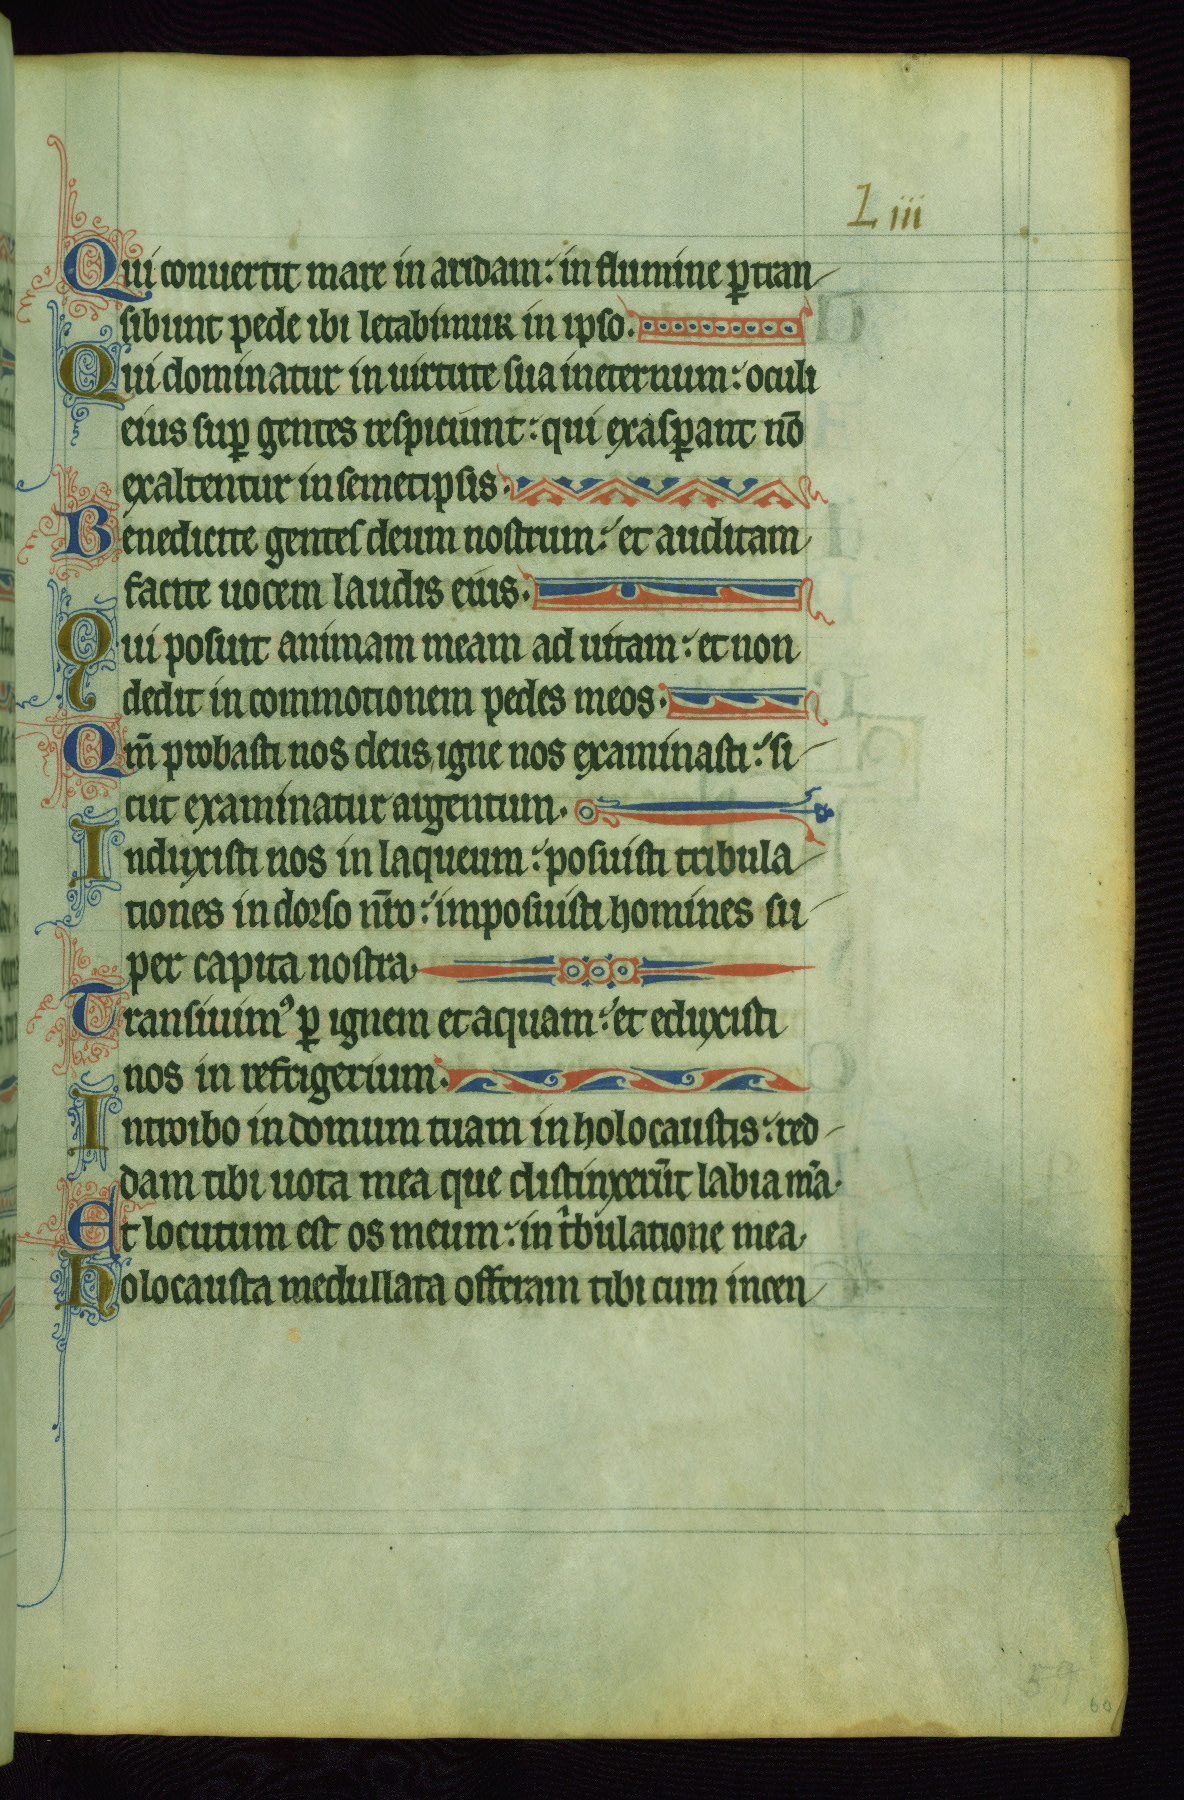 Liii
Qui conuertit mare in aridam: in flumine p̲tran
sibunt pede ibi letabimur in ipso.
Qui dominatur in uirtute sua in eternum: oculi
eius sup̲ gentes respiciunt: qui exasp̲ant nō
exaltentur in semetipsis.
Benedicite gentes deum nostrum: et auditam
facite uocem laudis eius.
Qui posuit animam meam ad uitam: et non
dedit in commotionem pedes meos.
Qm̄ probasti nos deus, igne nos examinasti: si
cut examinatur argentum.
Induxisti nos in laqueum: posuisti tribula
tiones in dorso nr̄o: imposuisti homines su
per capita nostra
Transiuimꝰ p̲ ignem et aquam: et eduxisti
nos in refrigerium.
Introibo in domum tuam in holocaustis: red
dam tibi uota mea que distinxerūt labia m̄a.
Et locutum est os meum: in tⁱbulatione mea.
Holocausta medullata offeram tibi cum incen
59
60